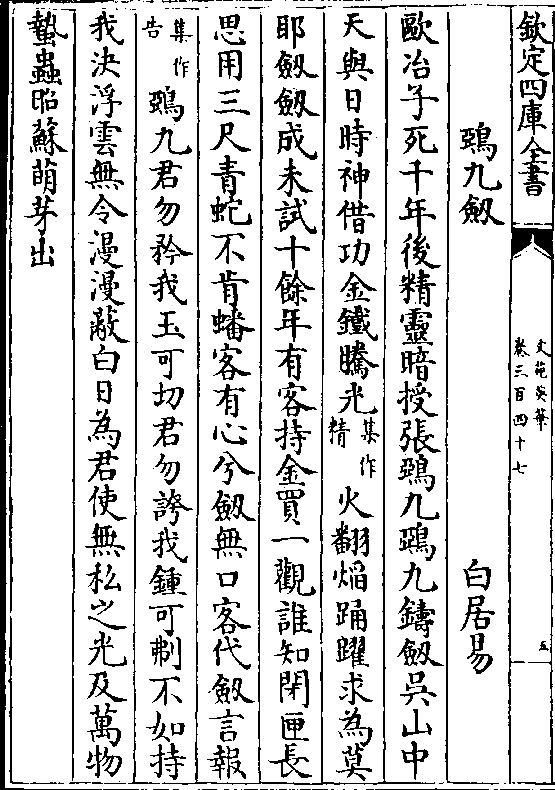 欽定四庫全書
文苑英華
卷三百四十七
五
鵶九劔
白居易
歐冶子死千年後精靈暗授張鵶九鵶九鑄劔吳山中
天與日時神借功金鐵騰光集作精火翻熖踊躍求為莫
耶劔劔成未試十餘年有客持金買一觀誰知閉匣長
思用三尺青蛇不肯蟠客有心兮劔無口客代劔言報
集作告鵶九君勿矜我玉可切君勿誇我鍾可刜不如持
我決浮雲無令漫漫蔽白日為君使無私之光及萬物
蟄蟲昭蘇萌芽出